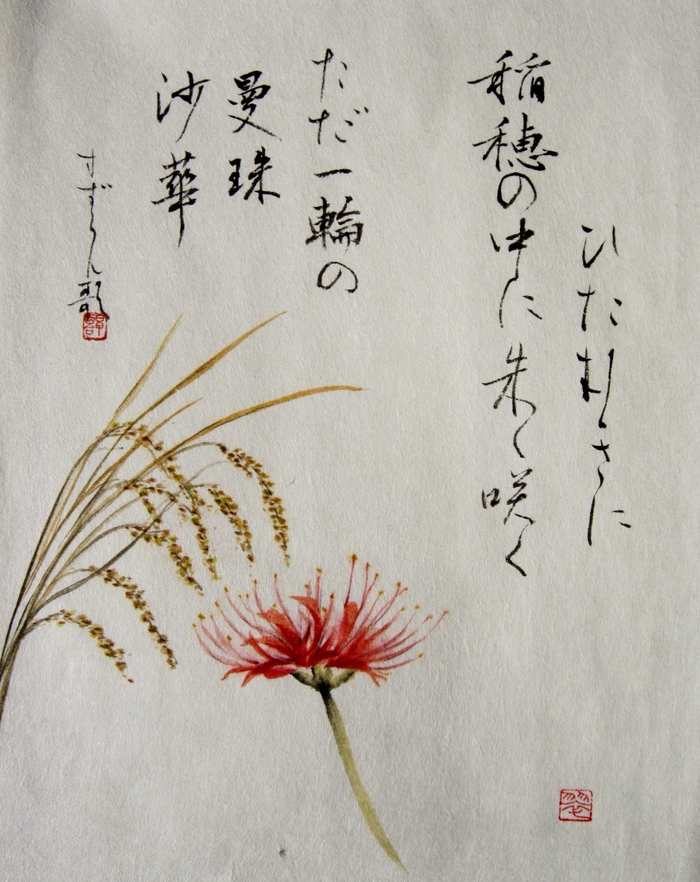 ひたむきに
稲穂の中に朱く咲く
ただ一輪の
曼珠
沙華
すずらん歌